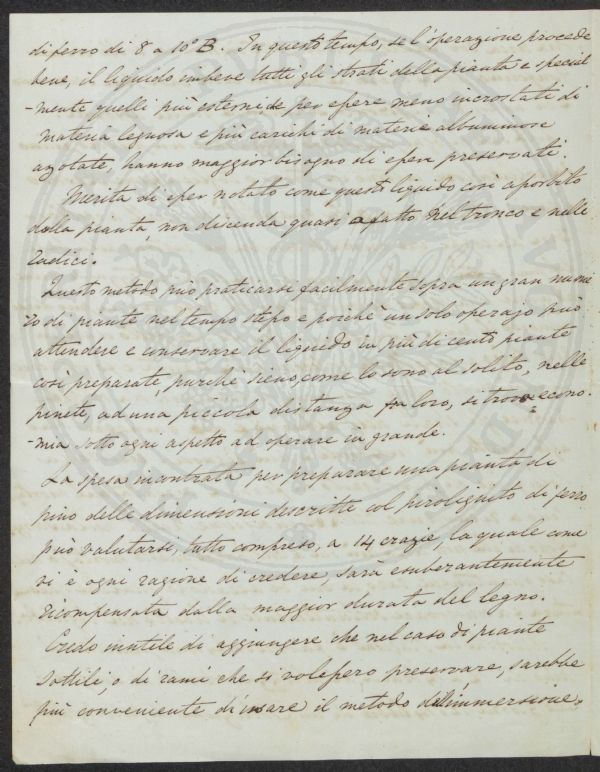 di ferro di 8 a 10° B. In questo tempo, se l'operazione procede
bene, il liquido imbeve tutti gli strati della pianta e special
-mente quelli più esterni che per essere meno incrostati di
materia legnosa e più carichi di materie albuminose
azotate, hanno maggior bisogno di esser preservati.
Merita di esser notato come questo liquido così assorbito
dalla pianta, non discenda quasi affatto nel tronco e nelle
radici.
Questo metodo può praticarsi facilmente sopra un gran nume
ro di piante nel tempo stesso e poichè un solo operajo può
attendere e conservare il liquido in più di cento piante
così preparate, purchè sieno, come lo sono al solito, nelle
pinete, ad una piccola distanza fra loro, si trova econo-
-mia sotto ogni aspetto ad operare in grande.
La spesa incontrata per preparare una pianta di
pino delle dimensioni descritte col pirolignito di ferro
può valutarsi, tutto compreso, a 14 crazie, la quale come
vi è ogni ragione di credere, sarà esuberantemente
ricompensata dalla maggior durata del legno.
Credo inutile di aggiungere che nel caso di piante
sottili, o di rami che si volessero preservare, sarebbe
più conveniente di usare il metodo dell'immersione,